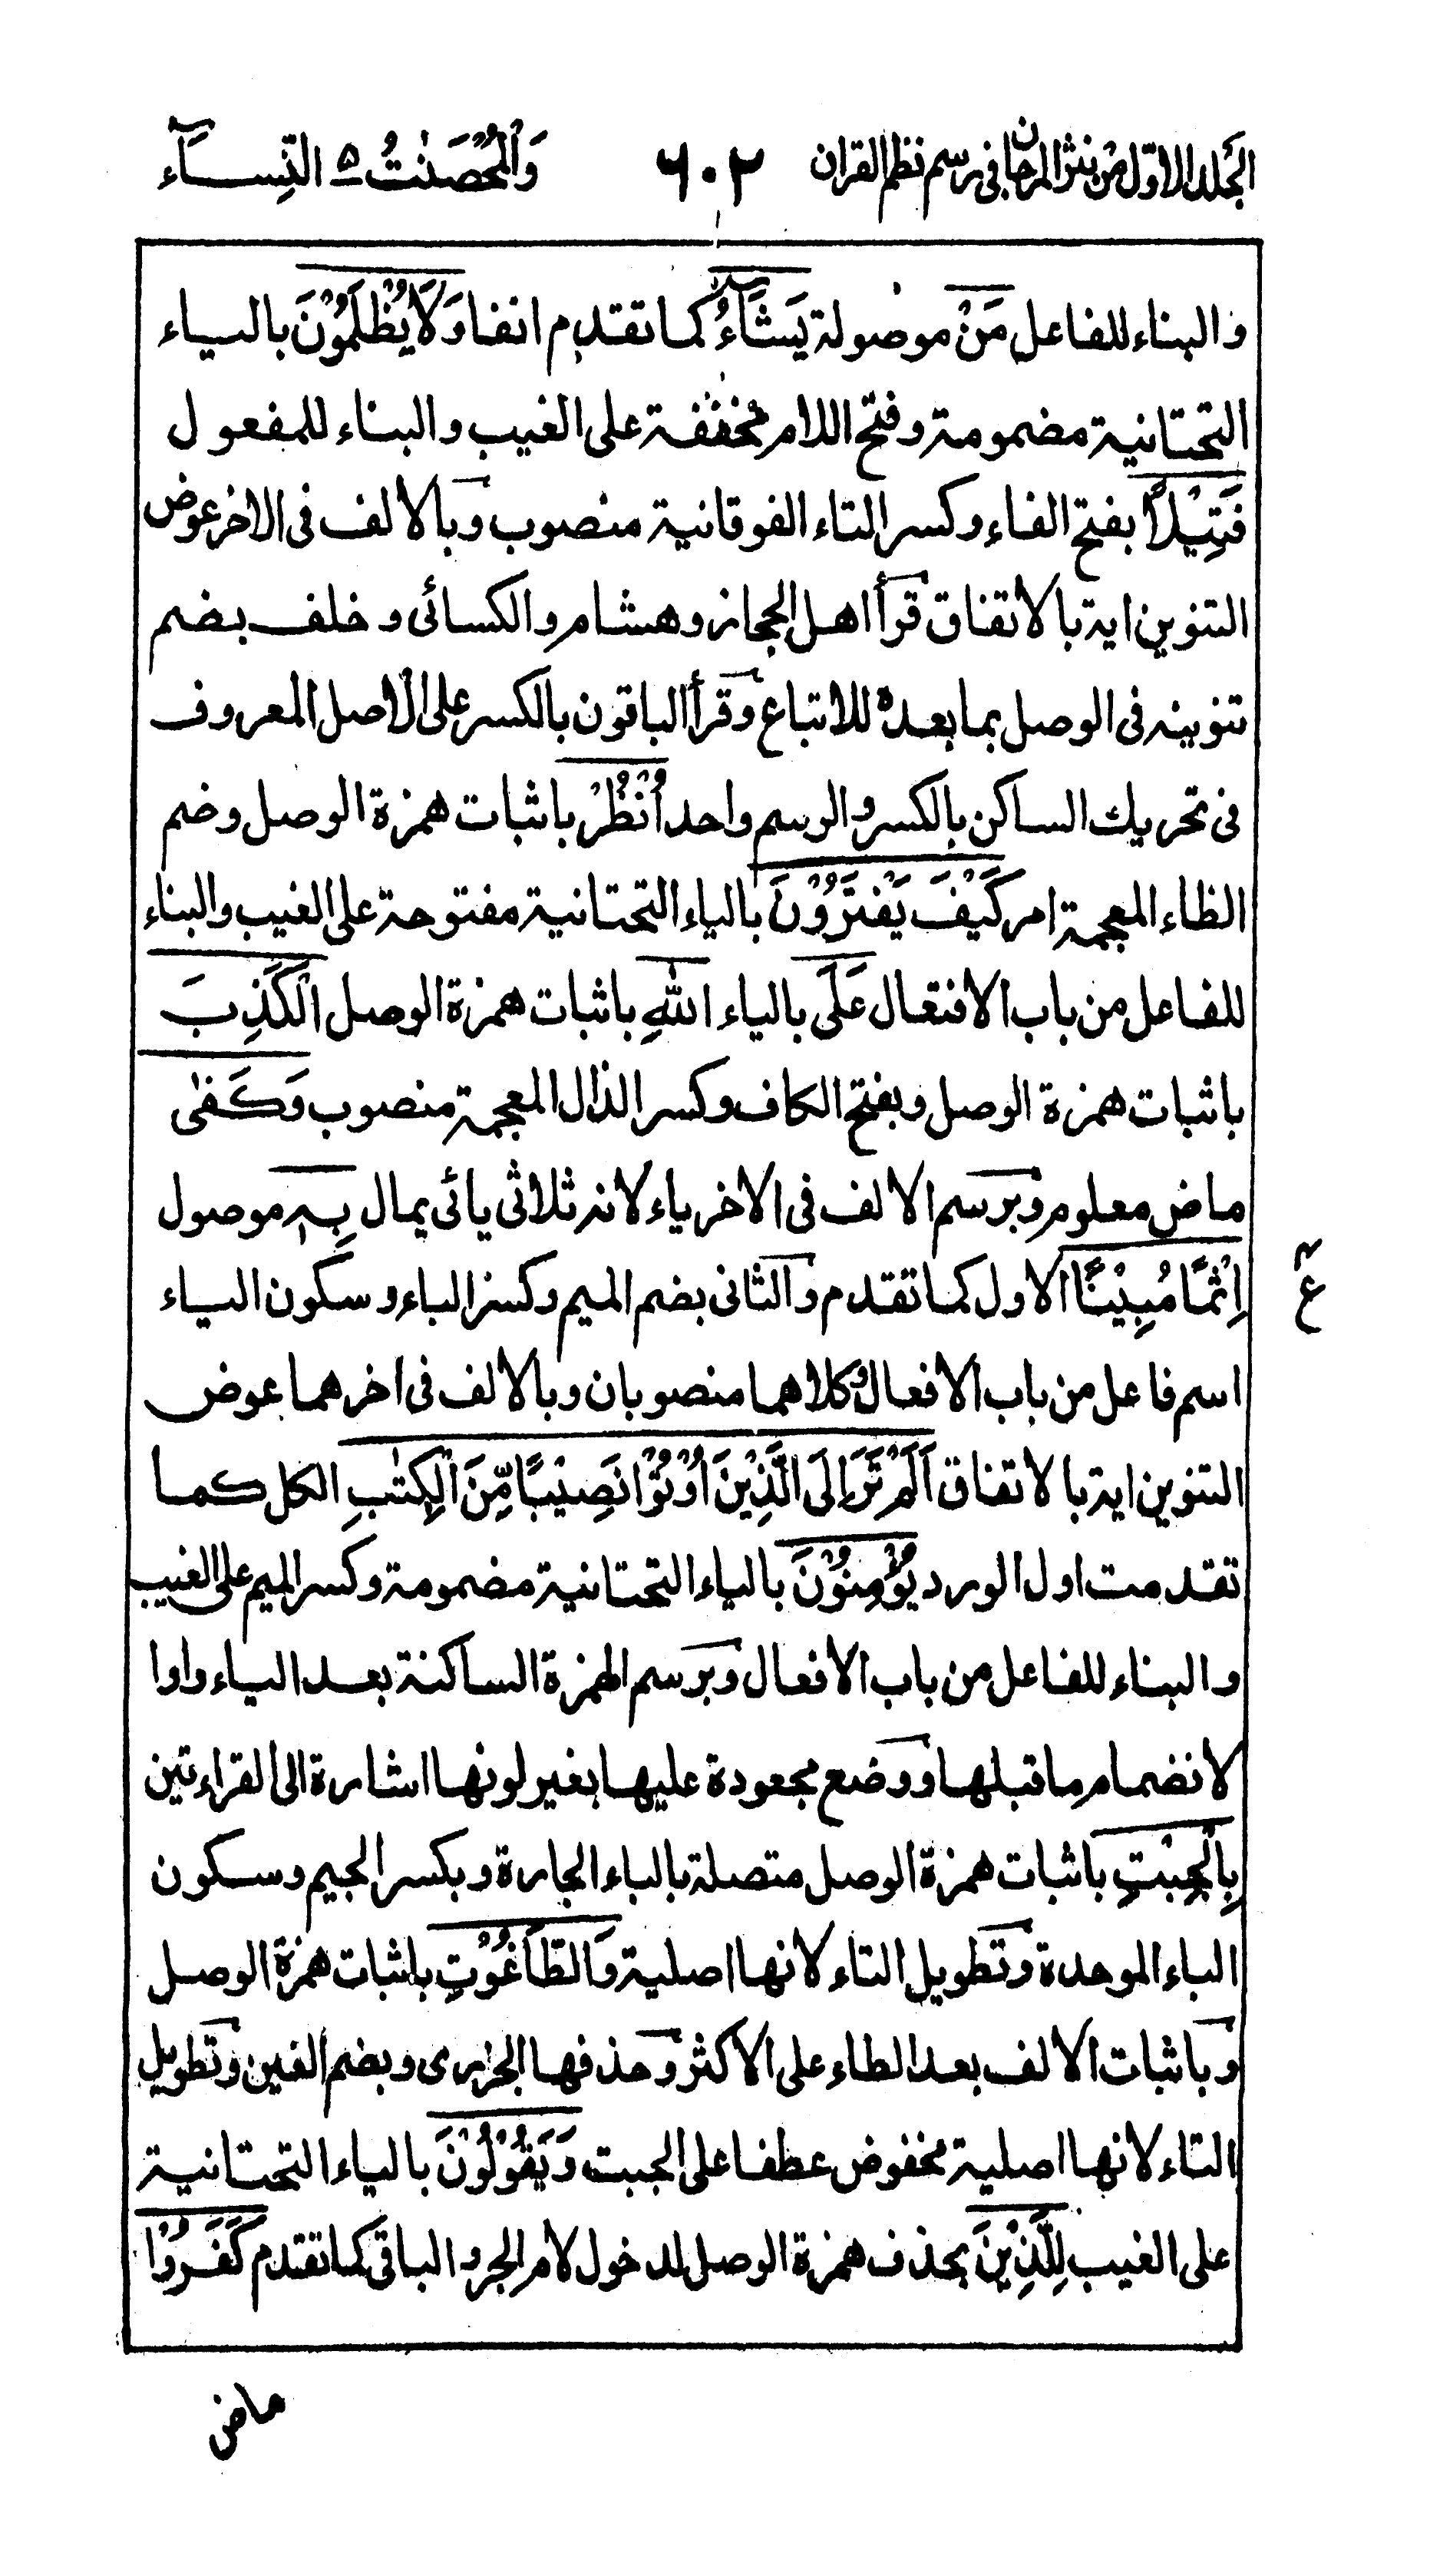 الجلد الاول من نثر المرجان فى رسم نظم القران ٦٠٢ وَالْمُحْصَنٰتُ ٥ النِّسَآء
والبناء للفاعل مَنْ موصولة يَشَآءُ كما تقدم انفا وَلَا يُظْلَمُوْنَ بالياء
التحتانية مضمومة وفتح اللام مخففة على الغيب والبناء للمفعول
فَتِيْلًا بفتح الفاء وكسر التاء الفوقانية منصوب وبالالف فى الاخر عوض
التنوين اية بالاتفاق قرأ اهل الحجاز وهشام والكسائى وخلف بضم
تنوينه فى الوصل بما بعده للاتباع وقرأ الباقون بالكسر على الاصل المعروف
فى تحريك الساكن بالكسر والرسم واحد اُنْظُرْ باثبات همزة الوصل وضم
الظاء المعجمة امر كَيْفَ يَفْتَرُوْنَ بالياء التحتانية مفتوحة على الغيب والبناء
للفاعل من باب الافتعال عَلَى بالياء اللّٰهِ باثبات همزة الوصل الْكَذِبَ
باثبات همزة الوصل وبفتح الكاف وكسر الذال المعجمة منصوب وَكَفٰى
ماض معلوم وبرسم الالف فى الاخر ياء لانه ثلاثى يائى يمال بِهٖ موصول
اِثْمًا مُبِيْنًا الاول كما تقدم والثانى بضم الميم وكسر الباء وسكون الياء
ع
اسم فاعل من باب الافعال وكلاهما منصوبان وبالالف فى اخرهما عوض
التنوين اية بالاتفاق اَلَمْ تَرَ اِلَى الَّذِيْنَ اُوْتُوْا نَصِيْبًا مِّنَ الْكِتٰبِ الكل كما
تقدمت اول الورد يُؤْمِنُوْنَ بالياء التحتانية مضمومة وكسر الميم على الغيب
والبناء للفاعل من باب الافعال وبرسم الهمزة الساكنة بعد الياء واوا
لانضمام ما قبلها ووضع مجعودة عليها بغير لونها اشارة الى القراءتين
بِالْجِبْتِ باثبات همزة الوصل متصلة بالباء الجارة وبكسر الجيم وسكون
الباء الموحدة وتطويل التاء لانها اصلية وَالطَّاغُوْتِ باثبات همزة الوصل
وباثبات الالف بعد الطاء على الاكثر وحذفها الجزرى وبضم الغين وتطويل
التاء لانها اصلية مخفوض عطفا على الجبت وَيَقُوْلُوْنَ بالياء التحتانية
على الغيب لِلَّذِيْنَ بحذف همزة الوصل لدخول لام الجر والباقى كما تقدم كَفَرُوْا
ماض